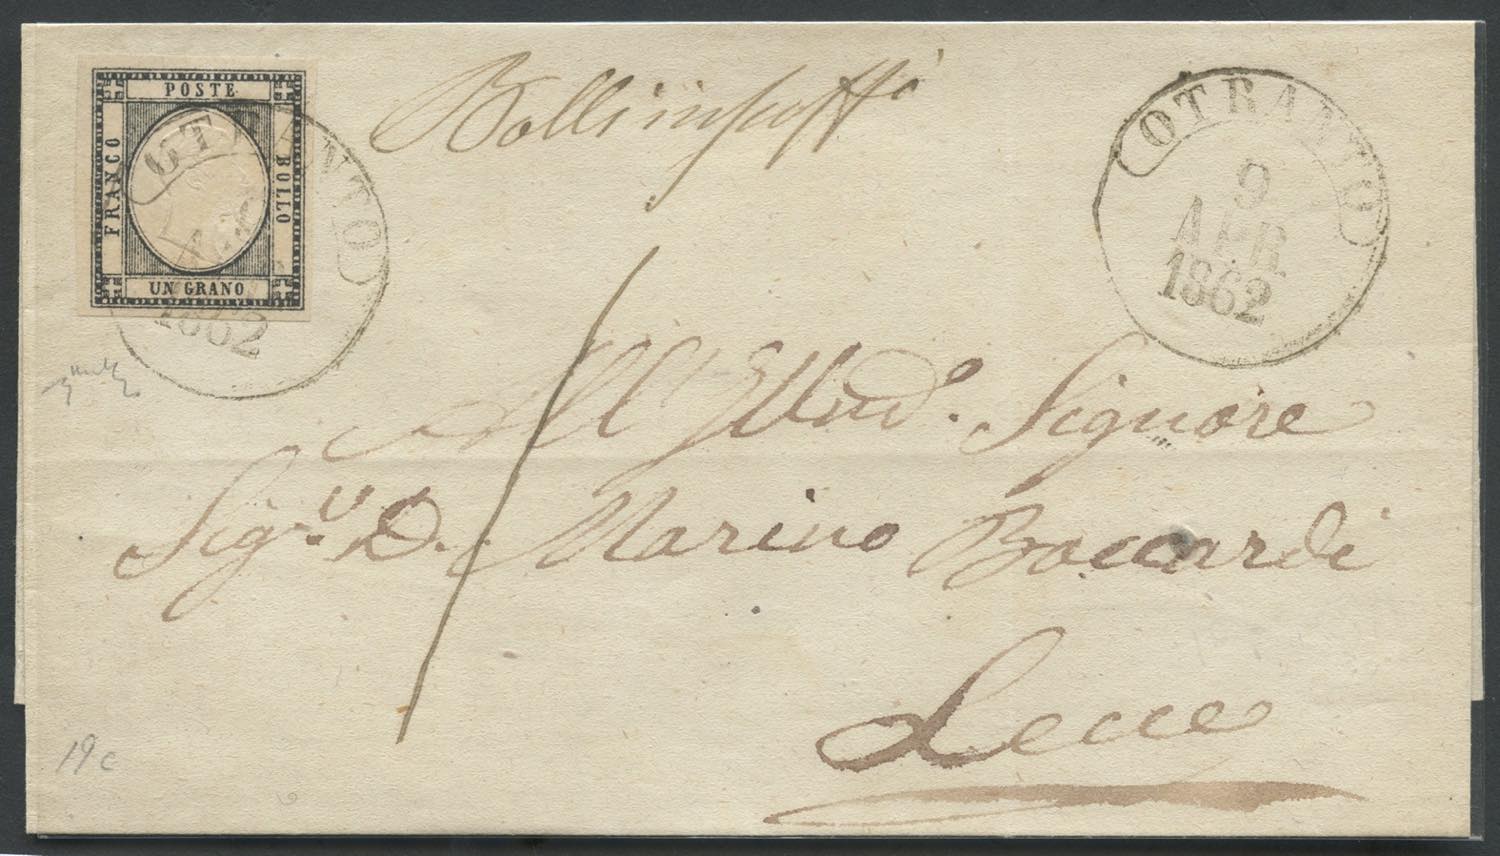 POSTE
FRANCO
BOLLO
UN GRANO
OTRANTO
1862
Bolli insuffi
OTRANTO
9
APR
1862
1
All' Signore
Sig.r D. Marino Boccardi
Lecce
19c